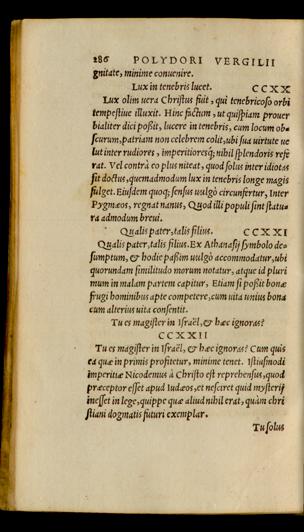 286 POLYDORI VERGILII
gnitate, minime conuenire.
Lux in tenebris lucet. CCXX
Lux olim uera Christus fuit, qui tenebricoso orbi
tempestiue illuxit. Hinc factum, ut quispiam prouer
bialiter dici possit, lucere in tenebris, cum locum ob=
scurum, patriam non celebrem colit, ubi sua uirtute ue
lut inter rudiores, imperitioresq; nihil splendoris refe
rat. Vel contrà eo plus niteat, quod solus inter idiotas
sit doctus, quemadmodum lux in tenebris longe magis
fulget. Eiusdem quoq; sensus uulgò circunfertur, Inter
Pygmæos, regnat nanus, Quod illi populi sint statu=
ra admodum breui.
Qualis pater, talis filius. CCXXI
Qualis pater, talis filius. Ex Athanasij symbolo de=
sumptum, & hodie passim uulgò accommodatur, ubi
quorundam similitudo morum notatur, atque id pluri
mum in malam partem capitur, Etiam si possit bonæ
frugi hominibus apte competere, cum uita unius bona
cum alterius uita consentit.
Tu es magister in Israël, & hæc ignoras?
CCXXII
Tu es magister in Israël, & hæc ignoras? Cum quis
ea quæ in primis profitetur, minime tenet. Istiusmodi
imperitiæ Nicodemus à Christo est reprehensus, quod
præceptor esset apud Iudæos, et nesciret quid mysterij
inesset in lege, quippe quæ aliud nihil erat, quàm chri
stiani dogmatis futuri exemplar.
Tu solus